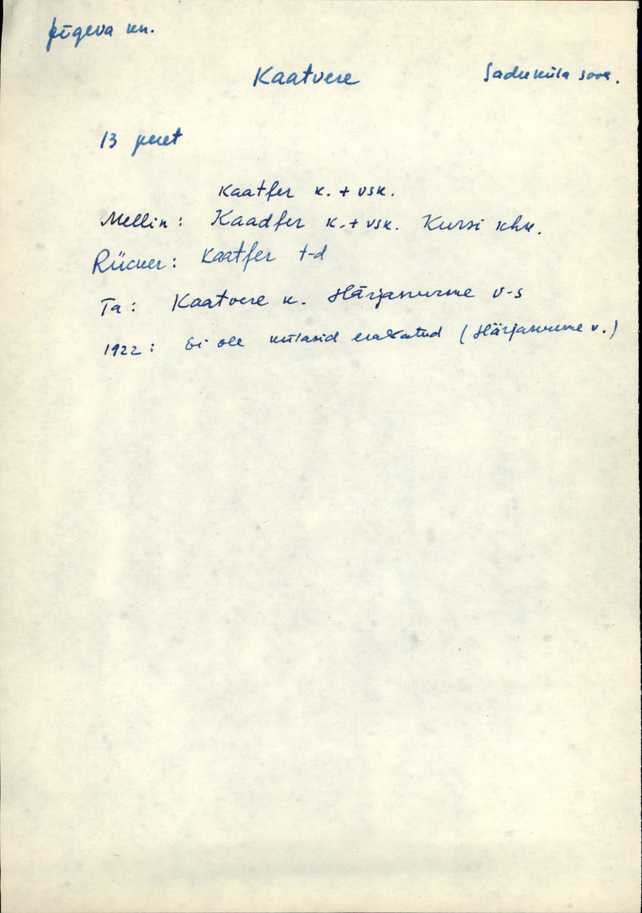 Jõgeva kn.
Kaatvere Saduküla soov.
13 peret
Kaatfer k. + vsk.
Mellin: Kaadfer k. + vsk. Kursi khk.
Rücker: Kaatfer t-d
Ta: Kaatvere k. Härjanurme v-s
1922: Ei ole külasid eraldatud (Härjanurme v.)